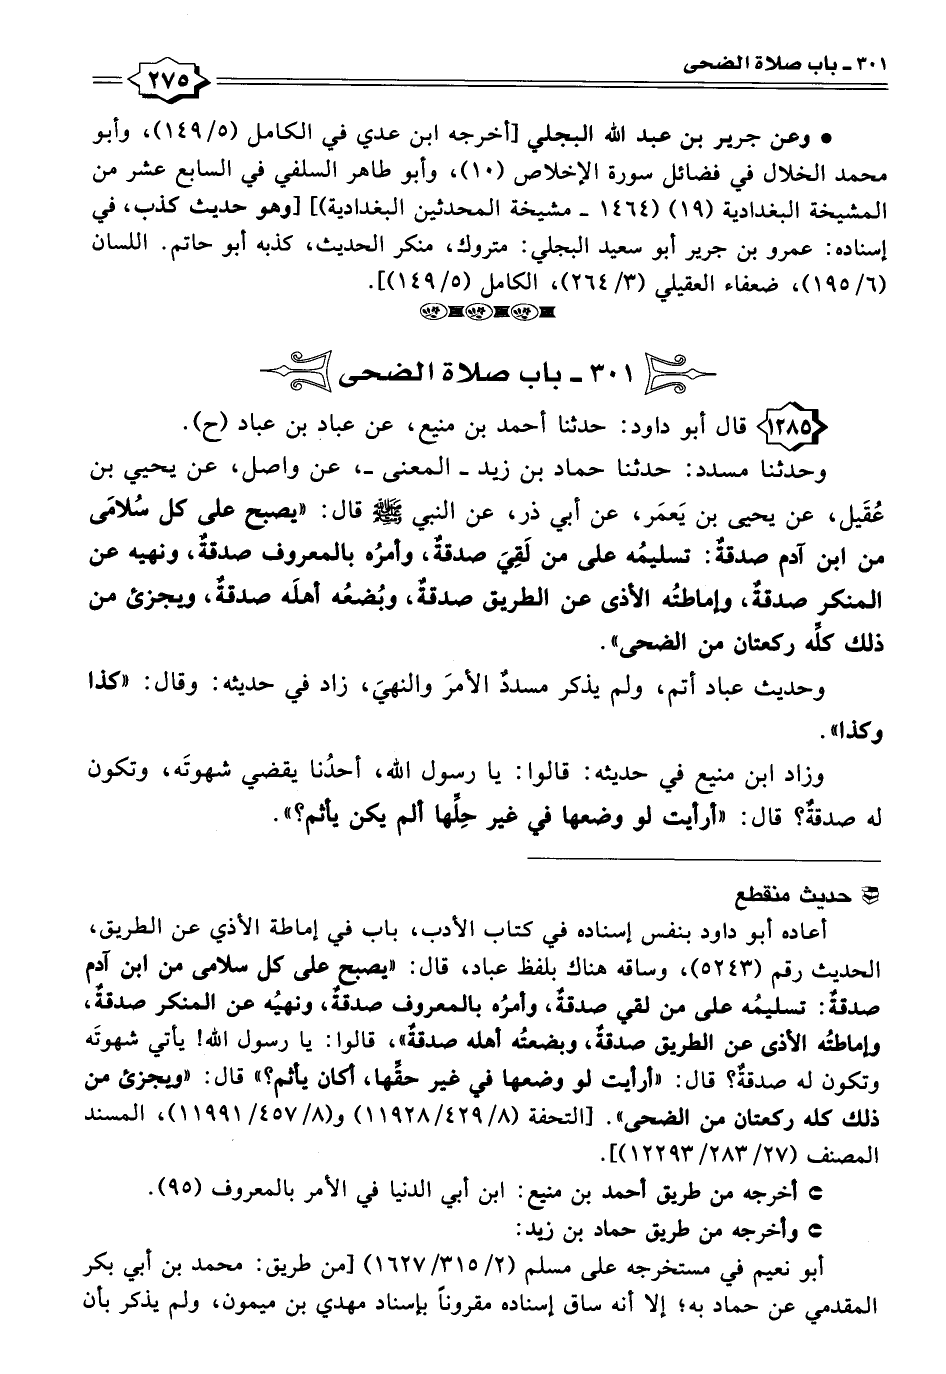 ٣٠١ - باب صلاة الضحى
٢٧٥
• وعن جرير بن عبد الله البجلي [أخرجه ابن عدي في الكامل (١٤٩/٥)، وأبو
محمد الخلال في فضائل سورة الإخلاص (١٠)، وأبو طاهر السلفي في السابع عشر من
المشيخة البغدادية (١٩) (١٤٦٤ - مشيخة المحدثين البغدادية)] [وهو حديث كذب، في
إسناده: عمرو بن جرير أبو سعيد البجلي: متروك، منكر الحديث، كذبه أبو حاتم. اللسان
(١٩٥/٦)، ضعفاء العقيلي (٢٦٤/٣)، الكامل (١٤٩/٥)].
٣٠١ - باب صلاة الضحى
١٢٨٥ قال أبو داود: حدثنا أحمد بن منيع، عن عباد بن عباد (ح).
وحدثنا مسدد: حدثنا حماد بن زيد - المعنى -، عن واصل، عن يحيى بن
عُقَيل، عن يحيى بن يَعمَر، عن أبي ذر، عن النبي ﷺ قال: «يصبح على كل سُلامَى
من ابن آدم صدقةٌ: تسليمُه على من لَقِيَ صدقةٌ، وأمرُه بالمعروف صدقةٌ، ونهيه عن
المنكر صدقةٌ، وإماطتُه الأذى عن الطريق صدقةٌ، وبُضعُه أهلَه صدقةٌ، ويجزئ من
ذلك كلِّه ركعتان من الضحى».
وحديث عباد أتم، ولم يذكر مسددٌ الأمرَ والنهيَ، زاد في حديثه: وقال: «كذا
وكذا».
وزاد ابن منيع في حديثه: قالوا: يا رسول الله، أحدُنا يقضي شهوتَه، وتكون
له صدقةٌ؟ قال: «أرأيت لو وضعها في غير حِلِّها ألم يكن يأثم؟».
حديث منقطع
أعاده أبو داود بنفس إسناده في كتاب الأدب، باب في إماطة الأذي عن الطريق،
الحديث رقم (٥٢٤٣)، وساقه هناك بلفظ عباد، قال: «يصبح على كل سلامى من ابن آدم
صدقةٌ: تسليمُه على من لقي صدقةٌ، وأمرُه بالمعروف صدقةٌ، ونهيُه عن المنكر صدقةٌ،
وإماطتُه الأذى عن الطريق صدقةٌ، وبضعتُه أهله صدقةٌ»، قالوا: يا رسول الله! يأتي شهوتَه
وتكون له صدقةٌ؟ قال: «أرأيت لو وضعها في غير حقِّها، أكان يأثم؟» قال: «ويجزئ من
ذلك كله ركعتان من الضحى». [التحفة (١١٩٢٨/٤٢٩/٨) و(١١٩٩١/٤٥٧/٨)، المسند
المصنف (١٢٢٩٣/٢٨٣/٢٧)].
أخرجه من طريق أحمد بن منيع: ابن أبي الدنيا في الأمر بالمعروف (٩٥).
وأخرجه من طريق حماد بن زيد:
أبو نعيم في مستخرجه على مسلم (١٦٢٧/٣١٥/٢) [من طريق: محمد بن أبي بكر
المقدمي عن حماد به؛ إلا أنه ساق إسناده مقروناً بإسناد مهدي بن ميمون، ولم يذكر بأن